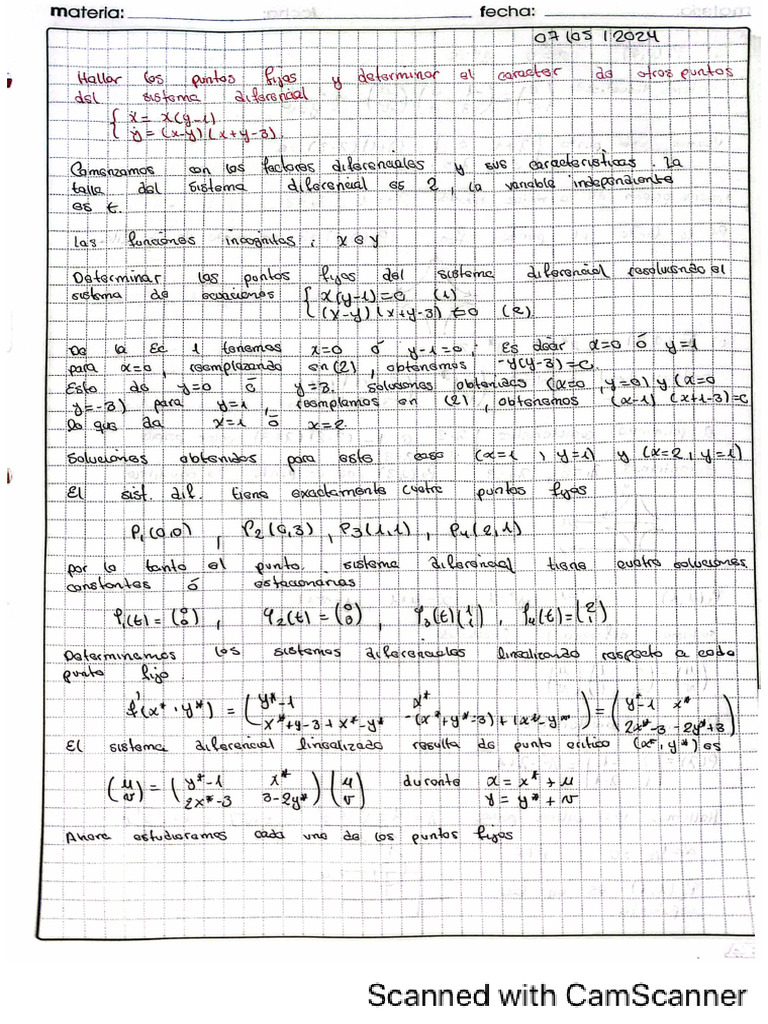 materia: fecha:
07/05/2024
Hallar los puntos fijos y determinar el caracter de otros puntos
del sistema diferencial
{ ẋ = x(y-1)
{ ẏ = (x-y)(x+y-3)
Comenzamos con los factores diferenciales y sus caracteristicas. La
talla del sistema diferencial es 2, la variable independiente
es t.
las funciones incognitas, x e y
Determinar los puntos fijos del sistema diferencial resolviendo el
sistema de ecuaciones { x(y-1)=0 (1)
{ (x-y)(x+y-3)=0 (2)
De la Ec 1 tenemos x=0 ó y-1=0; Es decir x=0 ó y=1
para x=0, reemplazando en (2), obtenemos -y(y-3)=0
Esto da y=0 ó y=3. soluciones obtenidas (x=0, y=0) y (x=0
y=-3) para y=1, reemplamos en (2), obtenemos (x-1)(x+1-3)=0
lo que da x=1 ó x=2
Soluciones obtenidas para este caso (x=1, y=1) y (x=2, y=1)
El sist. dif. tiene exactamente cuatro puntos fijos
P₁(0,0), P₂(0,3), P₃(1,1), P₄(2,1)
por lo tanto el punto. sistema diferencial tiene cuatro soluciones
constantes ó estacionarias
φ₁(t)=(0 0), φ₂(t)=(0 0), φ₃(t)(1 1), φ₄(t)=(2 1)
Determinamos los sistemas diferenciales linealizando respecto a cada
punto fijo
f'(x*,y*) = (y*-1 x* x*+y-3+x*-y* -(x*+y*-3)+(x*-y*) = (y*-1 x* 2x*-3 -2y*+3)
El sistema diferencial linealizado resulta de punto critico (x*,y*) es
(u v) = (y*-1 x* 2x*-3 3-2y*)(u v) durante x = x*+u y = y*+v
Ahora estudiaremos cada uno de los puntos fijos
Scanned with CamScanner